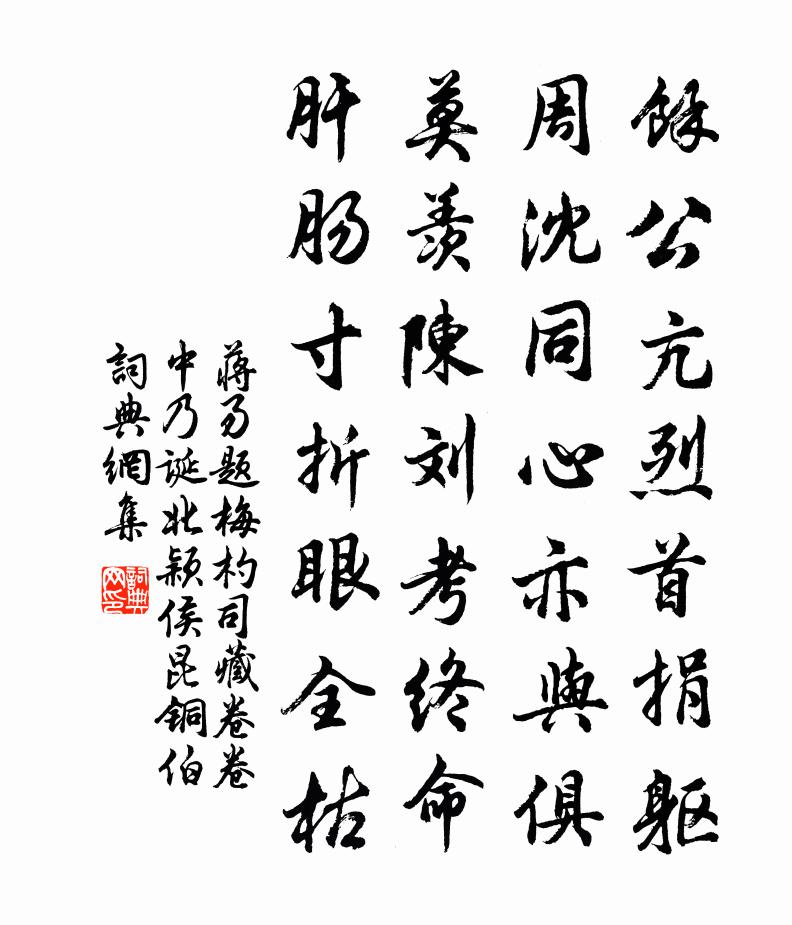 餘公亢烈首捐躯
周沈同心亦與俱
莫羨陳刘考终命
肝肠寸折眼全枯
蔣易题梅杓司藏卷卷
中乃诞北颖侯昆铜伯
詞典網集
詞典网印